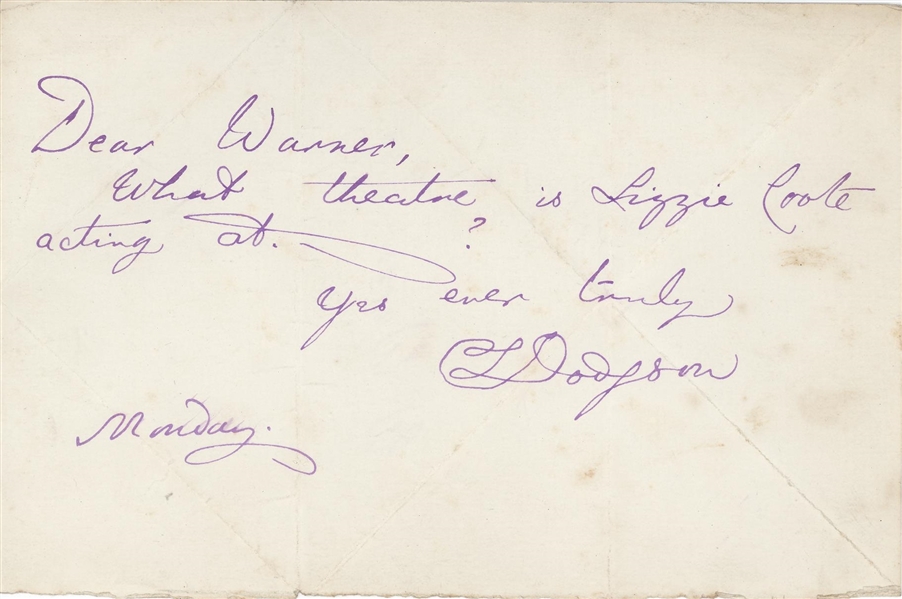 Dear Warner,
What theatre is Lizzie Coote
acting at. ?
Yrs ever truly
CLDodgson
Monday.